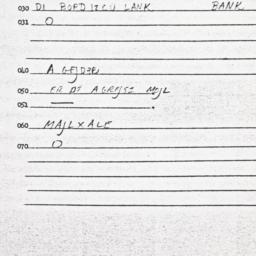 030 DI BORD ITCU LANK BANK
031 O
040 A GEJDER
050 ER DI AGREJSE MEJL
052
060 MAJLXALE
070 O